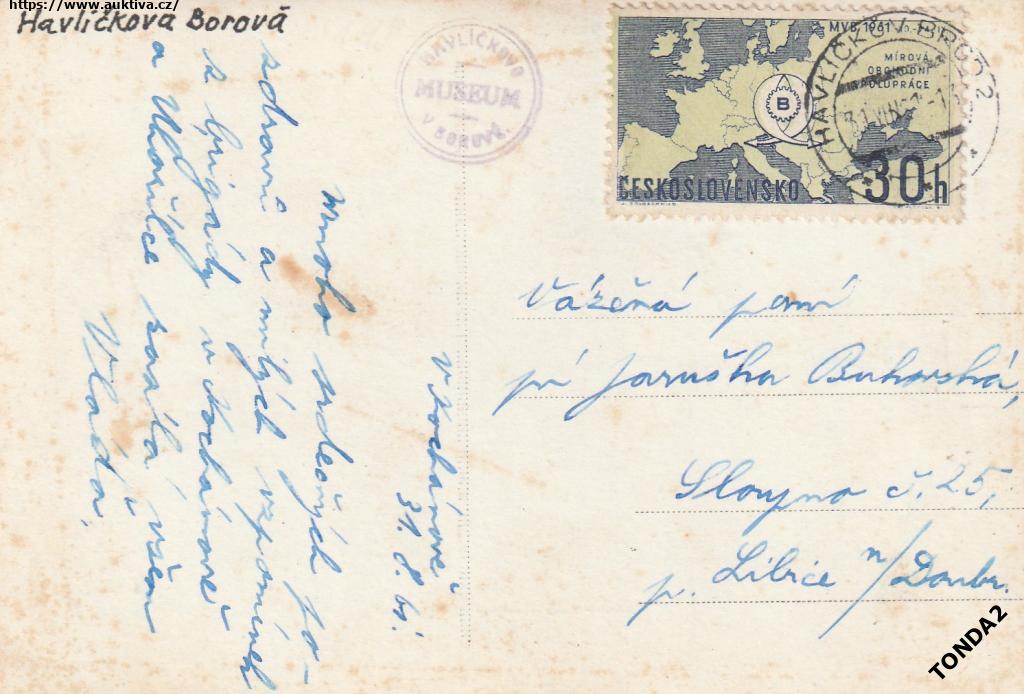 https://www.auktiva.cz/
Havlíčkova Borová
HAVLÍČKOVO
MUSEUM
V BOROVÉ.
MVB 1961
MÍROVÁ
OBCHODNÍ
SPOLUPRÁCE
B
ČESKOSLOVENSKO
30h
HAVLÍČKŮV BROD 2
31.VIII.61
31. 8. 61.
Mnoho srdečných po-
zdravů a milých vzpomínek
z brigády v
a zasílá všem
Vláďa.
Vážená paní
pí Jaruška Buhorská,
č. 25,
p. Libice n/Doubr.
TONDA2